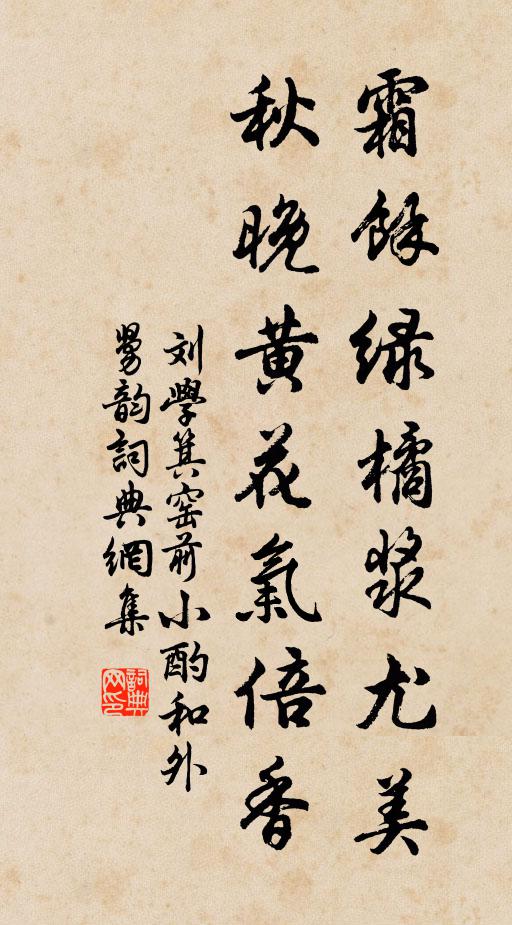 霜餘绿橘漿尤美
秋晚黄花氣倍香
刘學箕窑前小酌和外
舅韵詞典網集
詞典網印